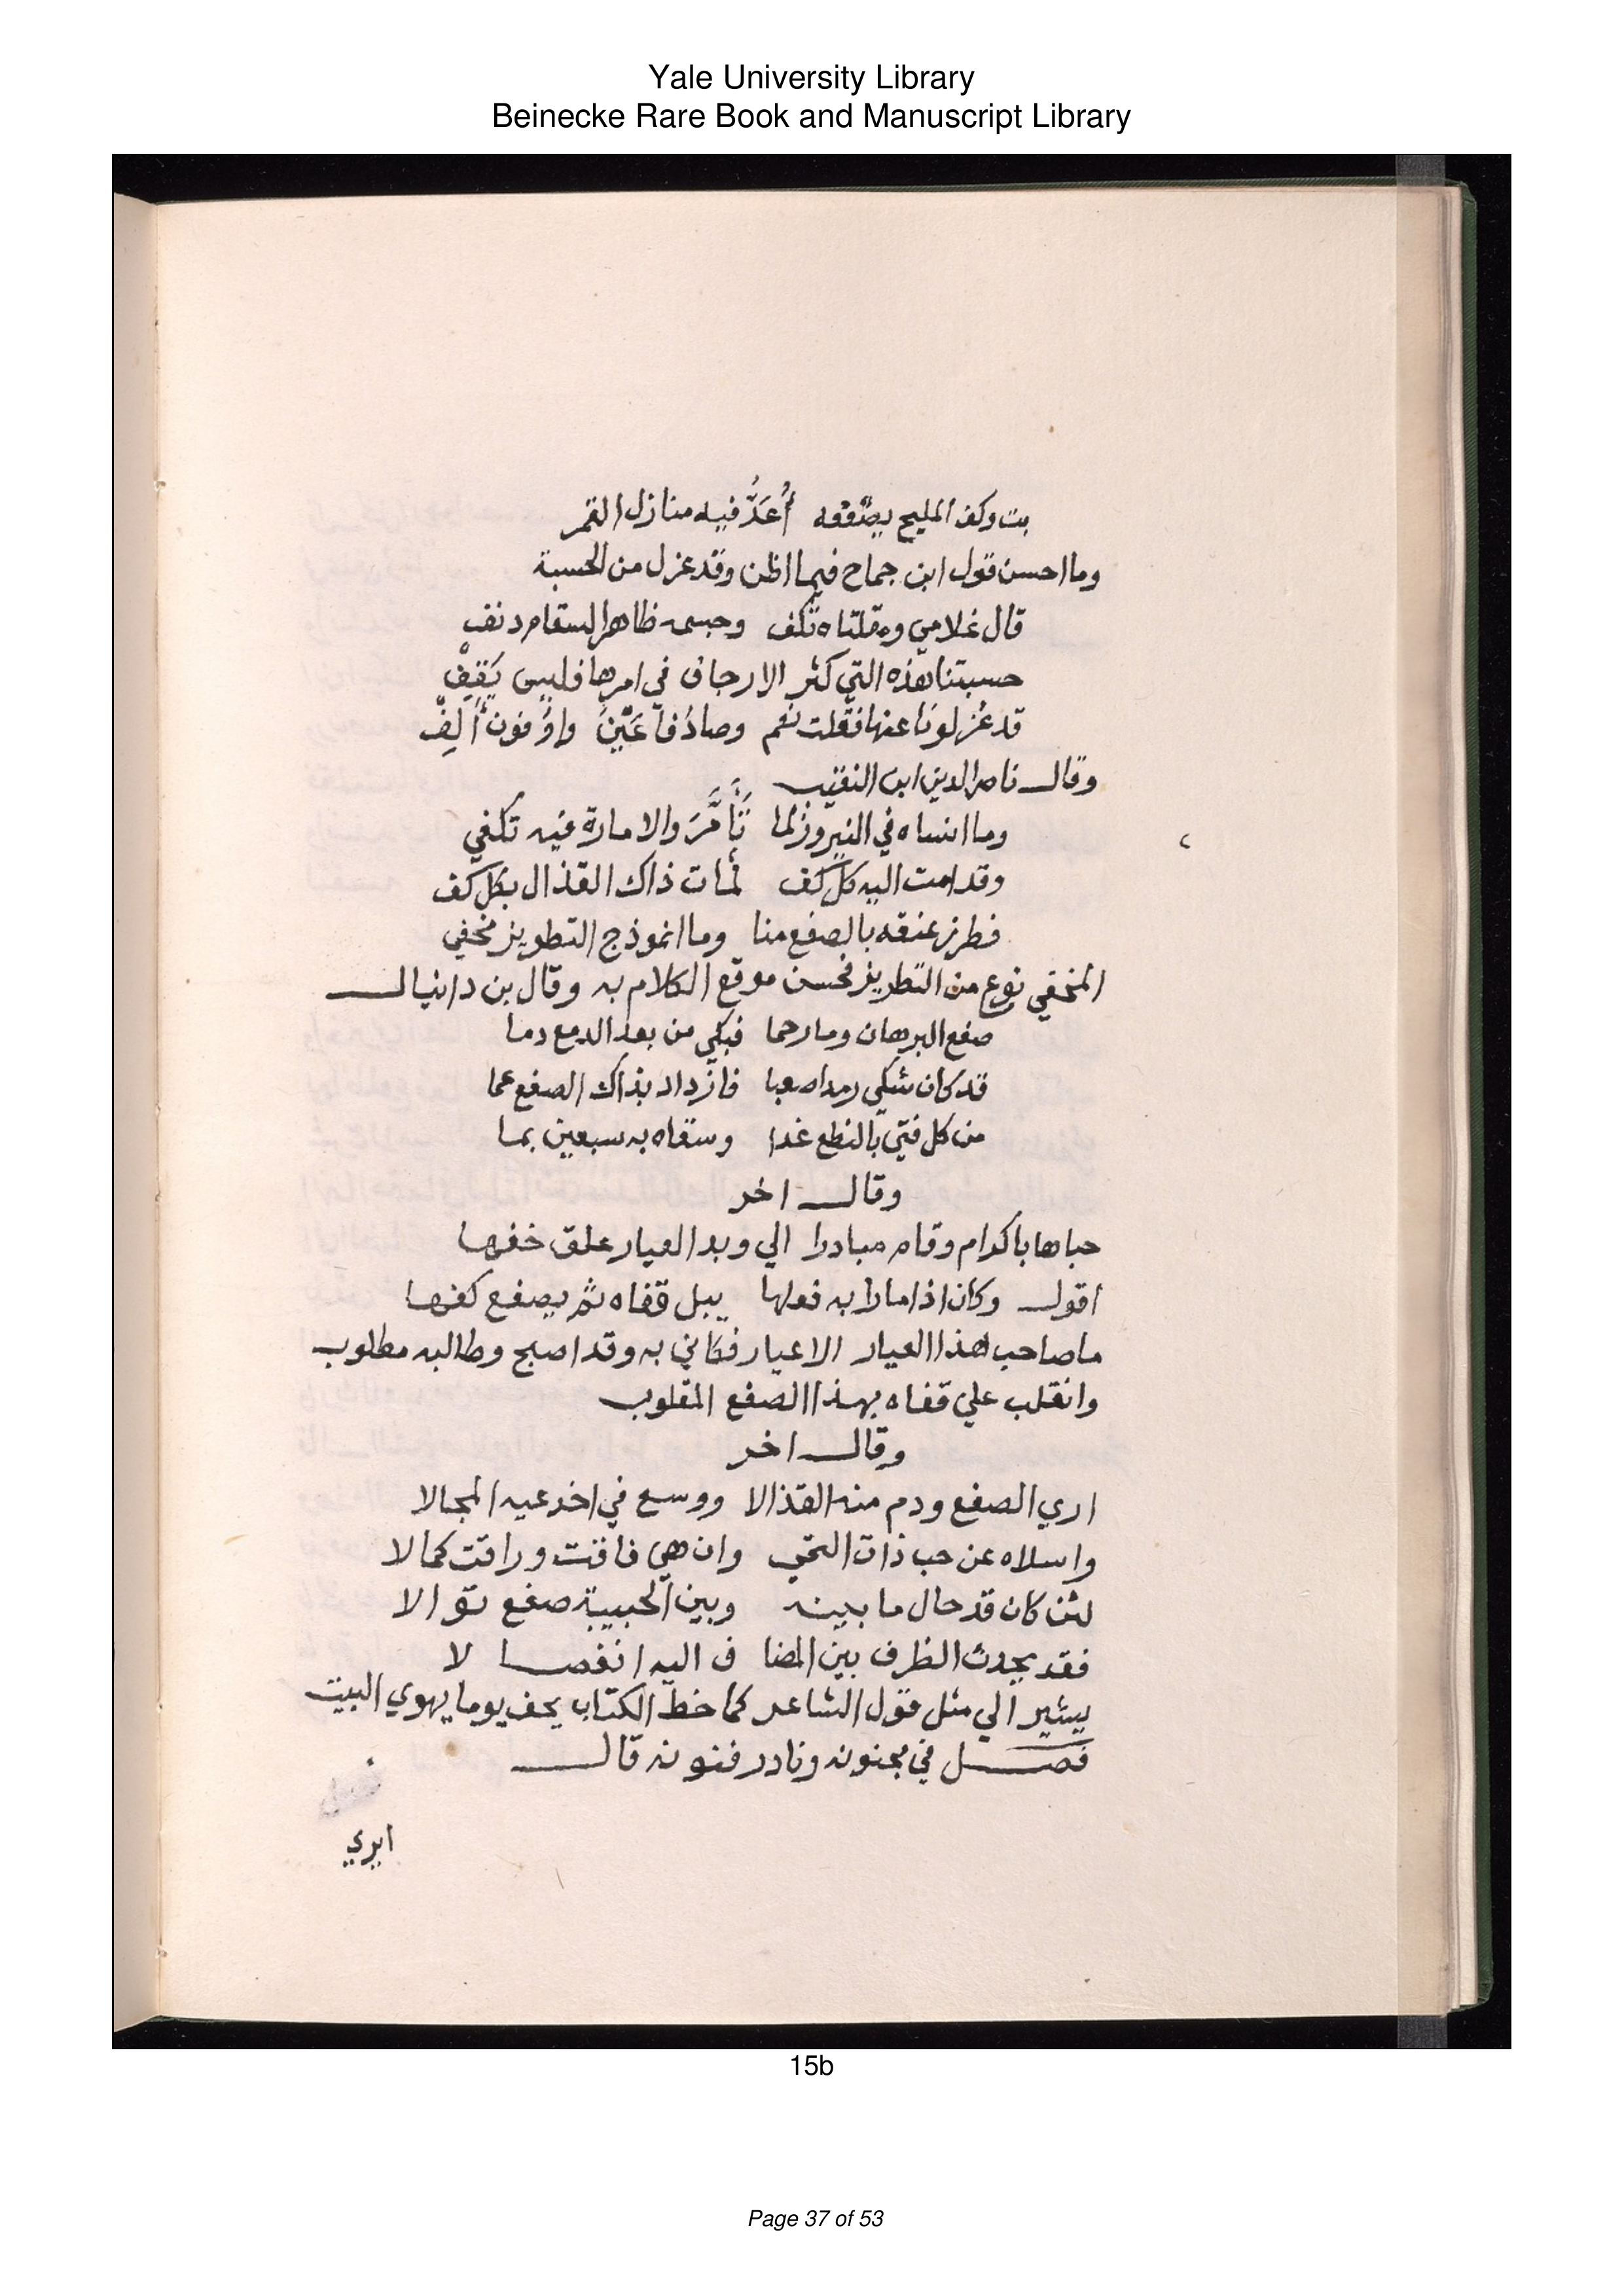 Yale University Library
Beinecke Rare Book and Manuscript Library
بت وكف المليح يصفعه أُعَدُّ فيه منازل القمر
وما احسن قول ابن جماح فيما اظن وقد عزل من الحسبة
قال غلامي ومقلتاه تكف وجسمه ظاهر السقام دنف
حسبتنا هذه التي كثر الارجاف في امرها فليس يَقِفْ
قد عُزلونا عنها فقلت نعم وصادُ فا عَيْنٌ واوٌ فونٌ أَلِفْ
وقال ناصر الدين ابن النقيب
وما انساه في النيروز لما تَأَمَّرَ والامارة فيه تكفي
وقد امت اليه كل كف لمات ذاك القذال بكل كف
فطرز عنقه بالصفع منا وما انموذج التطويز مخفي
المخفي نوع من التطريز فحسن موقع الكلام به وقال بن دانيال
صفع البرهان وما رحما فبكي من بعد الدمع دما
قد كان شكي رمدا صعبا فازداد بذاك الصفع عما
من كل فتي بالنطع غدا وسقاه به سبعين بما
وقال اخر
حباها باكرام وقام مبادرا الي وبد العيار علق خفها
اقول وكان اذا ما رابه فعلها يبل قفاه ثم يصفع كفها
ما صاحب هذا العيار الا عيار فكاني به وقد اصبح وطالبه مطلوب
وانقلب علي قفاه بهذا الصفع المقلوب
وقال اخر
اري الصفع ودم منه القذالا ووسع في اخدعيه المجالا
واسلاه عن حب ذات اللمي وان هي فاقت وراقت كمالا
لئن كان قد حال ما بينه وبين الحبيبة صفع توالا
فقد يحدث الظرف بين المضا ف اليه انفصا لا
يشير الي مثل قول الشاعر كما خط الكتاب بكف يوما يهوي البيت
فصل في مجنونه ونادر فنونه قال
ايري
15b
Page 37 of 53